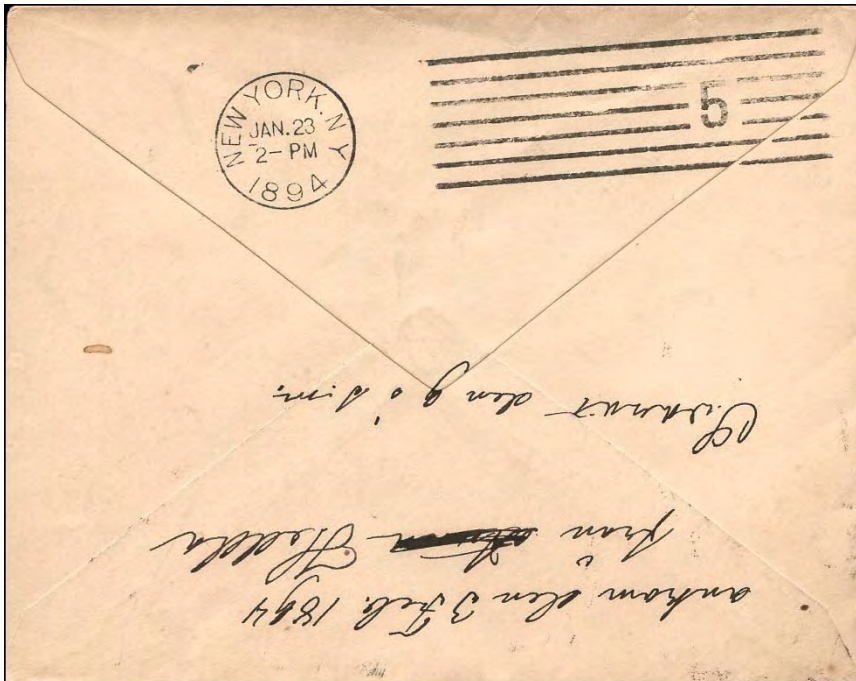 NEW YORK, N.Y.
JAN. 23
2- PM
1894
5
ankom den 3 Feb. 1894
från Hedda
den 9